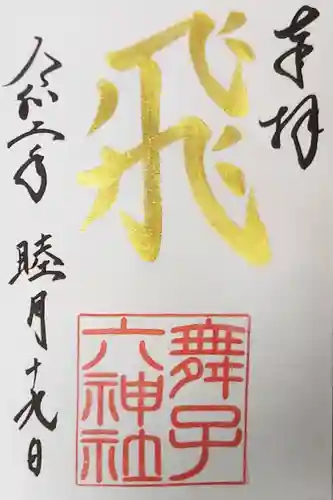 奉拝
飛
舞子
六神社
令和二年 睦月 十九日